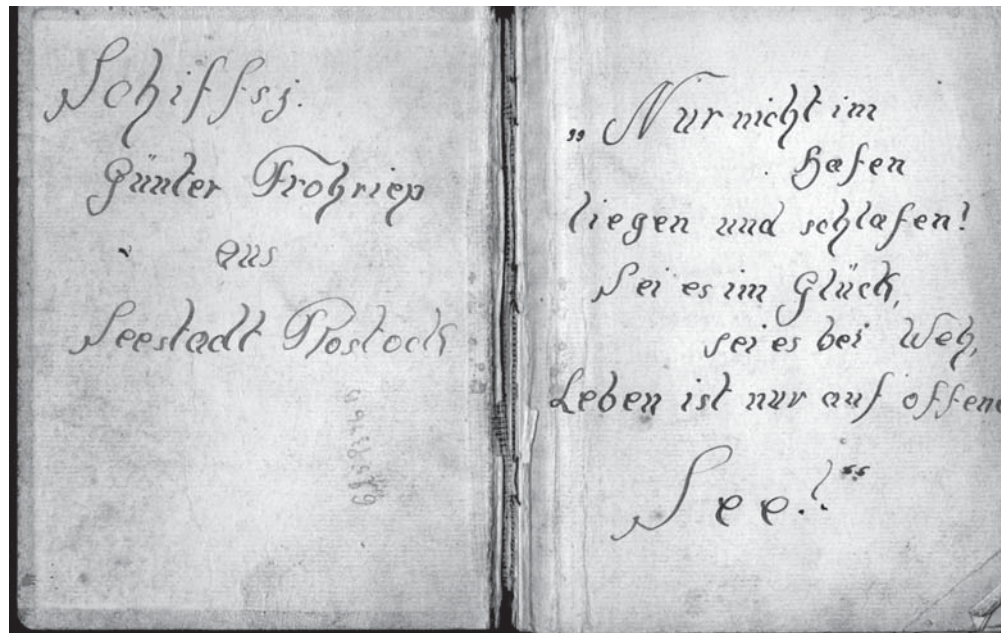 Schiffsj.
Günter Frohriep
aus
Seestadt Rostock
„Nur nicht im
Hafen
liegen und schlafen!
Sei es im Glück,
sei es bei Weh,
Leben ist nur auf offene
See!“